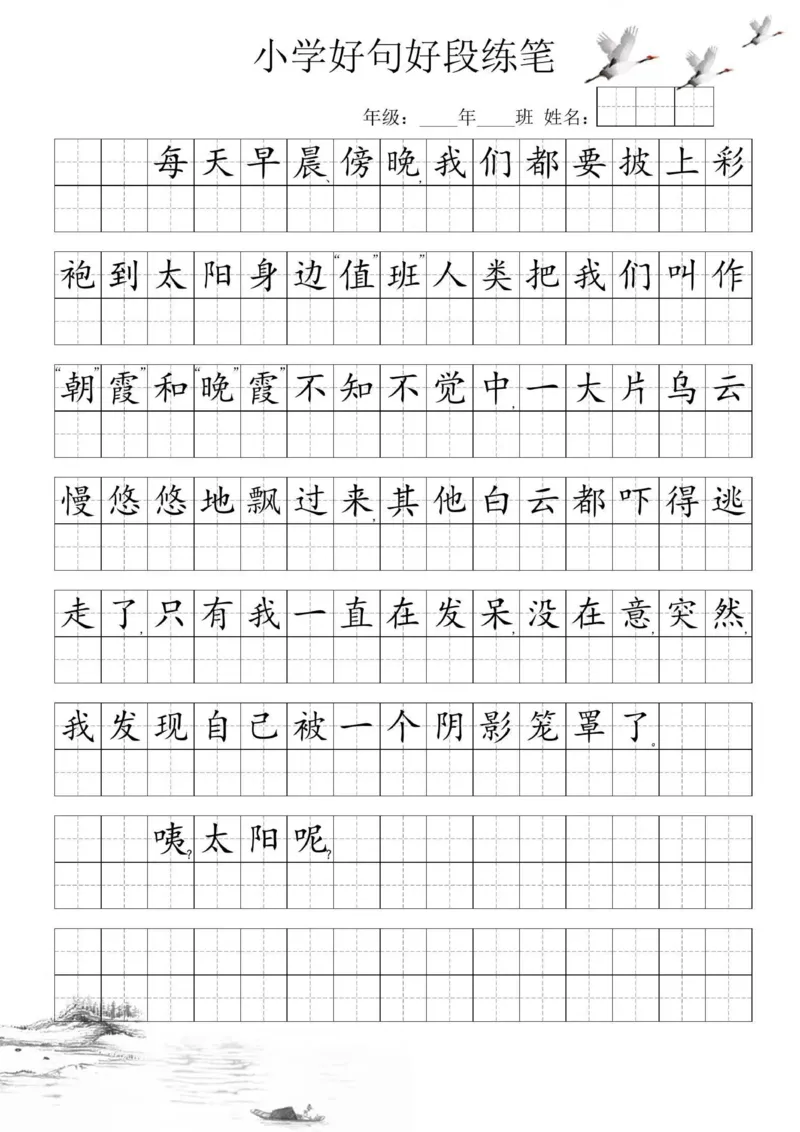 小学好句好段练笔
年级：____年____班 姓名：
每天早晨、傍晚，我们都要披上彩
袍到太阳身边“值”班”人类把我们叫作
“朝”霞”和“晚”霞”不知不觉中，一大片乌云
慢悠悠地飘过来，其他白云都吓得逃
走了，只有我一直在发呆，没在意，突然，
我发现自己被一个阴影笼罩了。
咦？太阳呢？